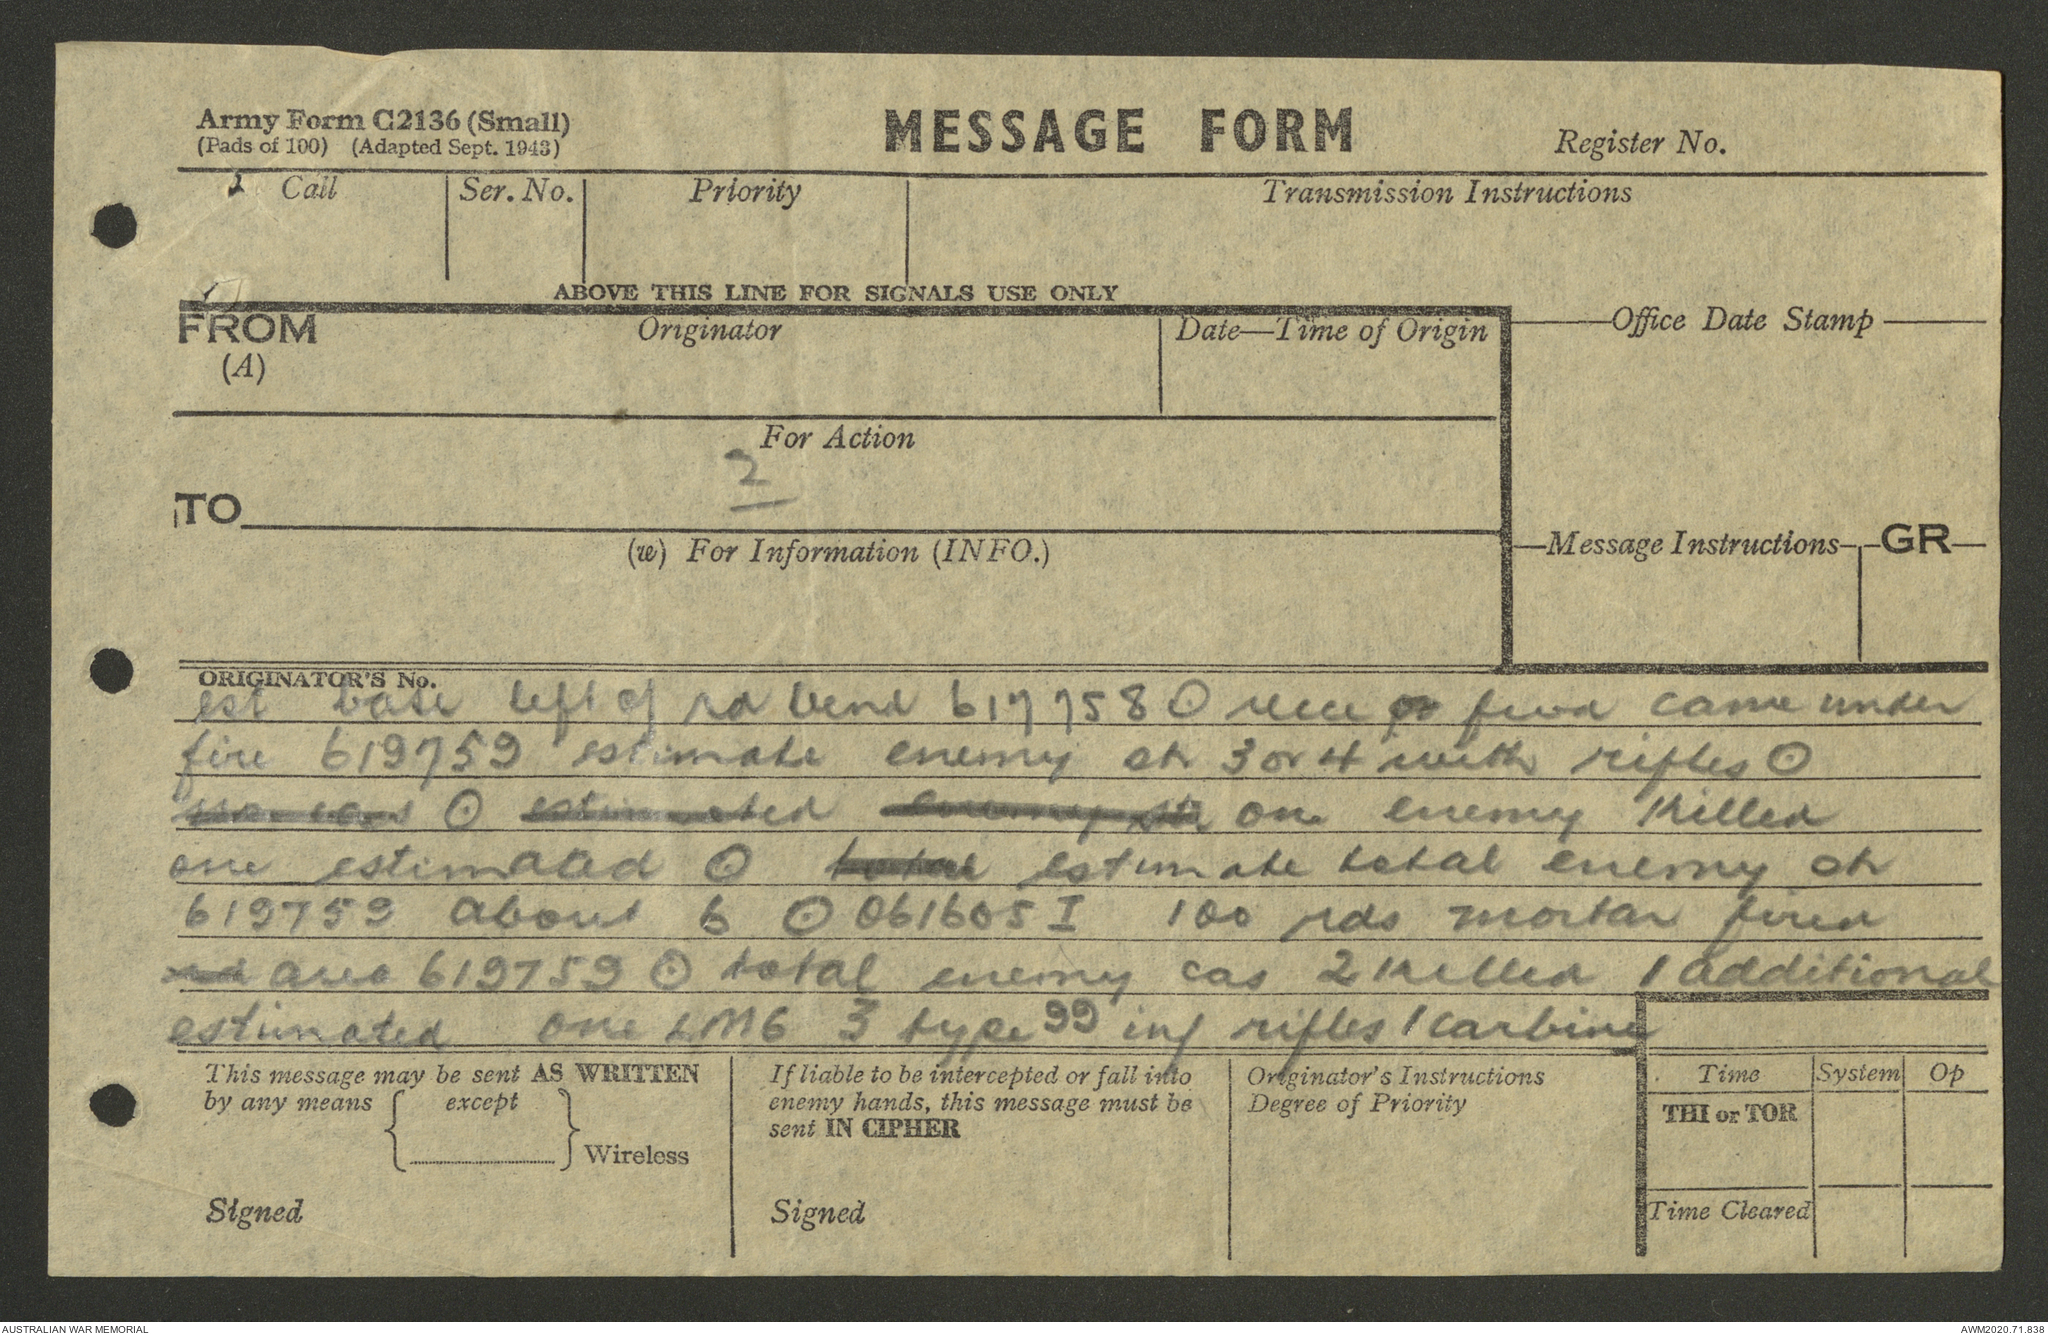 Army Form C2136 (Small)
(Pads of 100) (Adapted Sept. 1943)
MESSAGE FORM
Register No.
Call
Ser. No.
Priority
Transmission Instructions
ABOVE THIS LINE FOR SIGNALS USE ONLY
FROM
(A)
Originator
Date—Time of Origin
Office Date Stamp
For Action
2
TO
(w) For Information (INFO.)
Message Instructions
GR
ORIGINATOR'S No.
est base left of rd bend 617758 ⊙ recce fwd came under
fire 619759 estimate enemy str 3 or 4 with rifles ⊙
⊙ estimated enemy str one enemy killed
one estimated ⊙ total estimate total enemy str
619759 about 6 ⊙ 061605 I 100 rds mortar fired
area 619759 ⊙ total enemy cas 2 killed 1 additional
estimated one LMG 3 type 99 inf rifles 1 carbine
This message may be sent AS WRITTEN
by any means except
Wireless
Signed
If liable to be intercepted or fall into
enemy hands, this message must be
sent IN CIPHER
Signed
Originator's Instructions
Degree of Priority
Time
System
Op
THI or TOR
Time Cleared
AUSTRALIAN WAR MEMORIAL
AWM2020.71.838